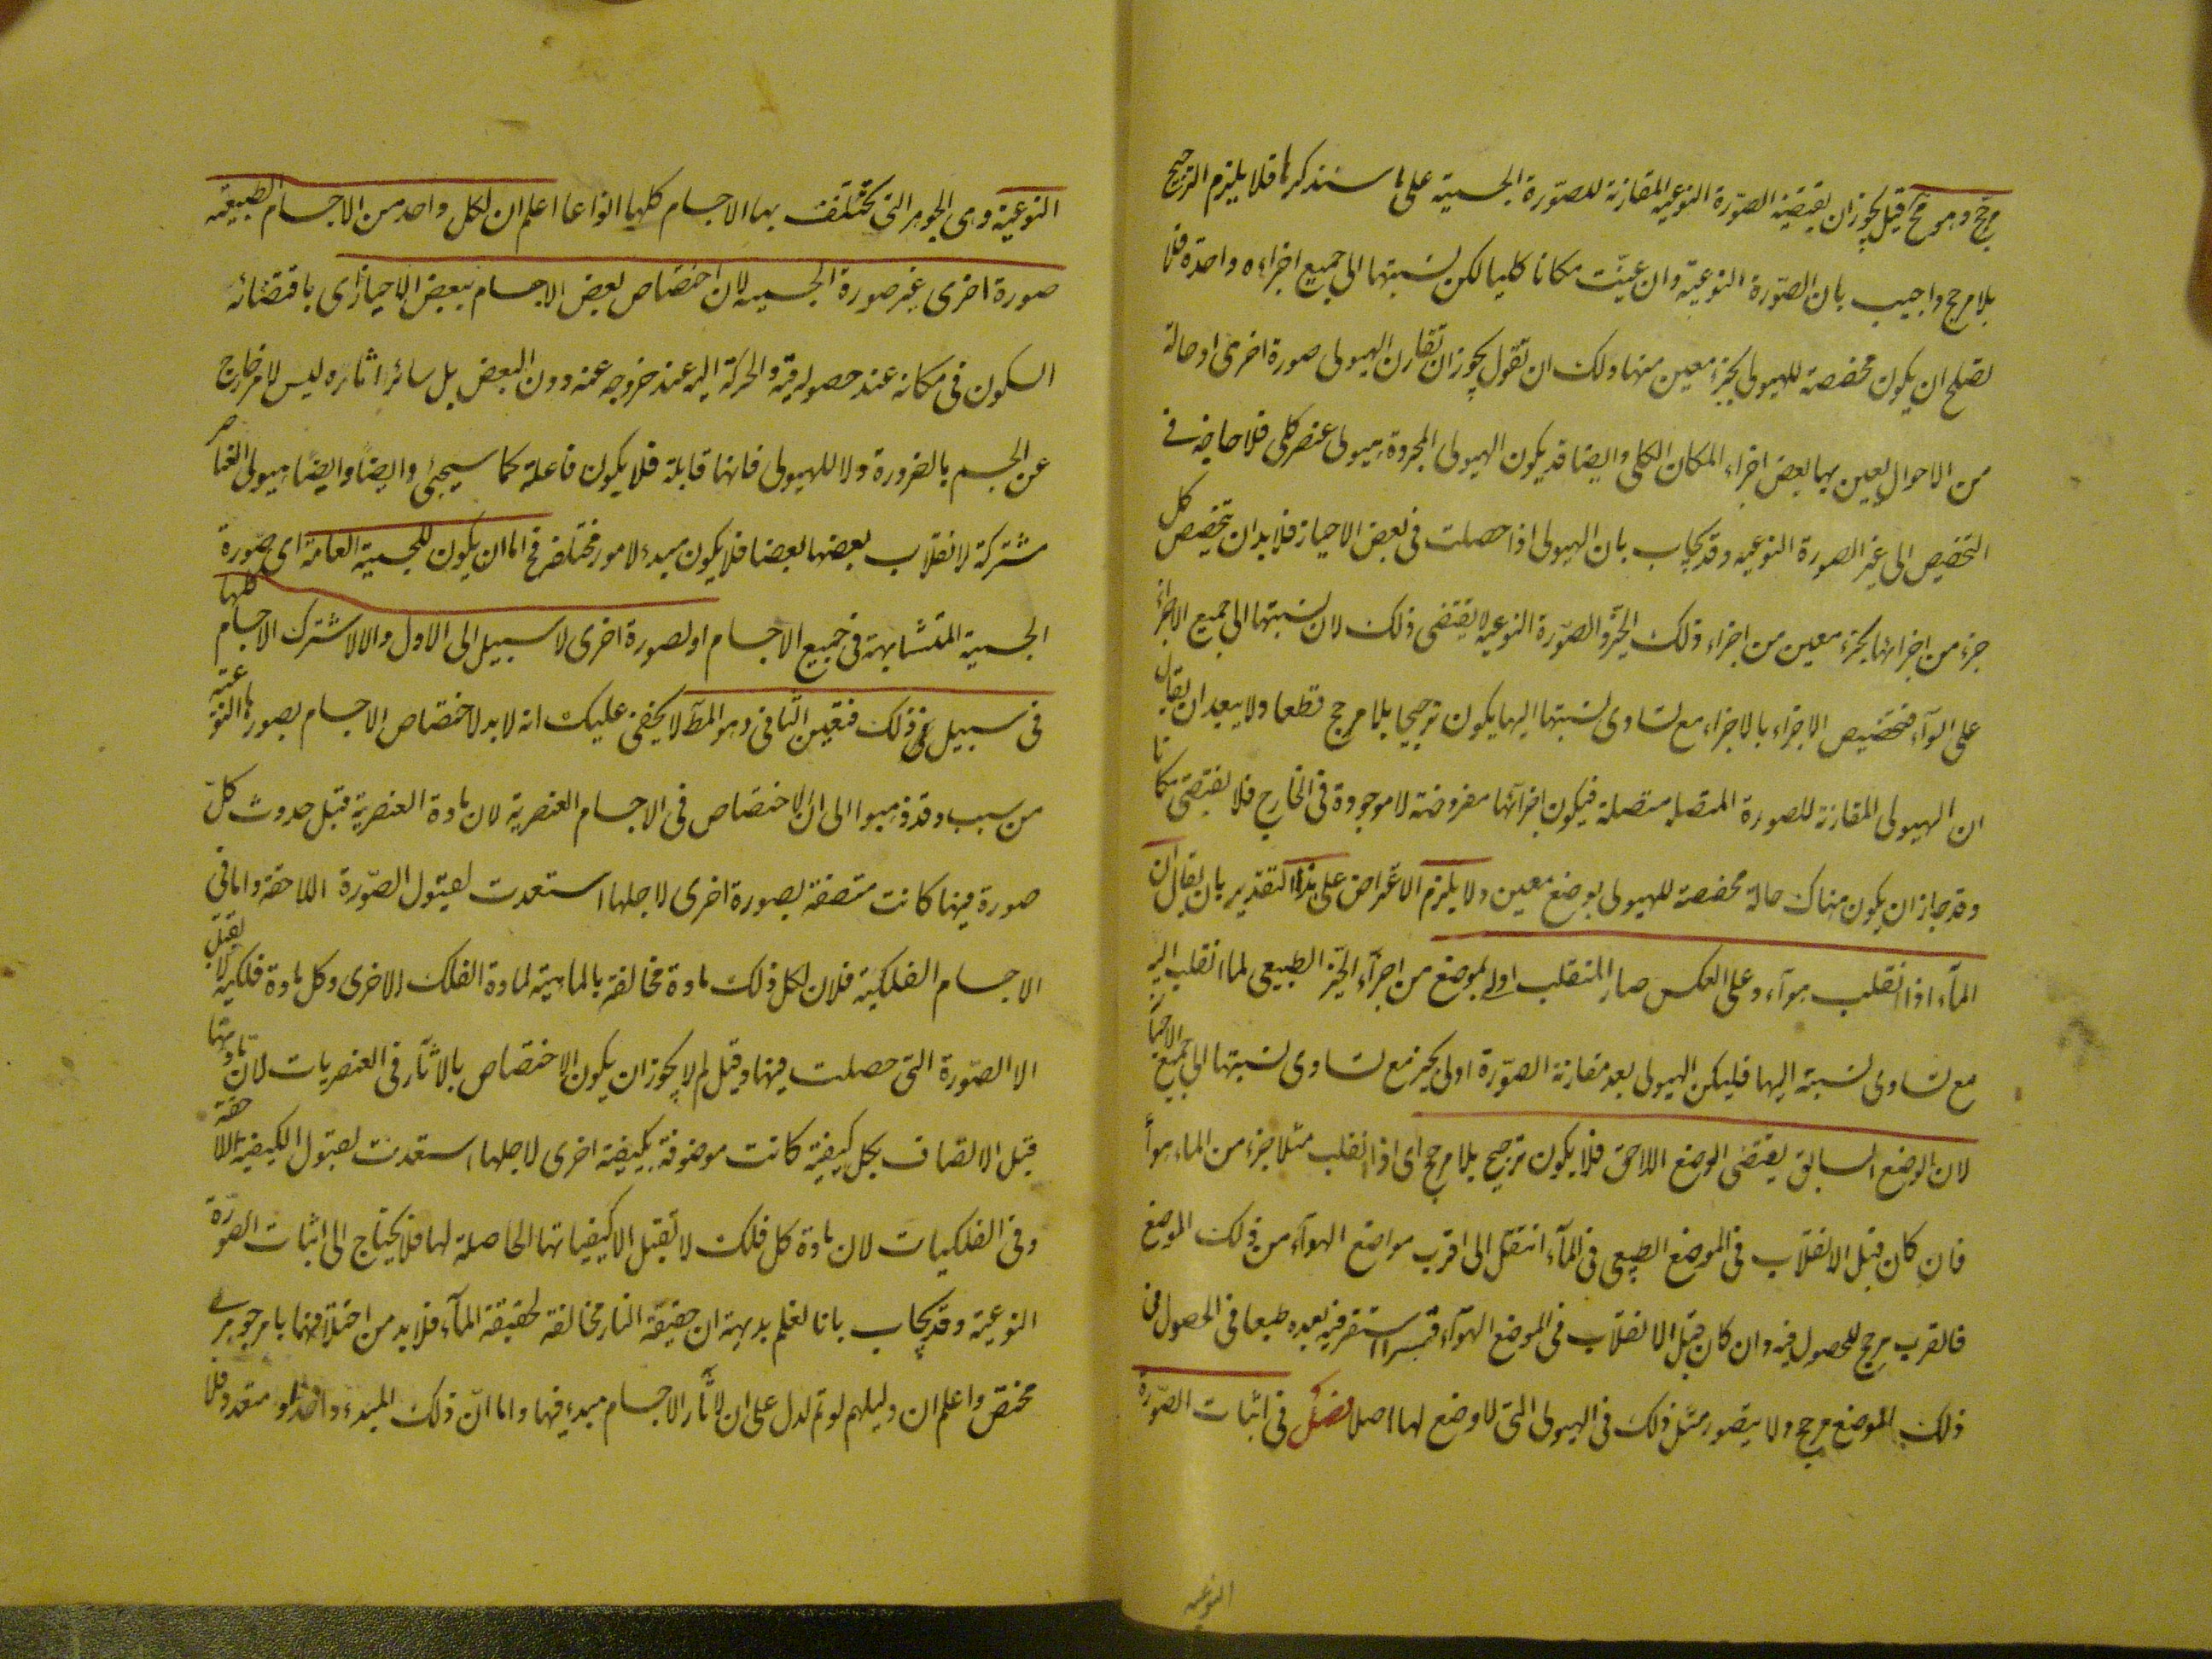 مرجح وهو مح قيل يجوز ان يقتضيه الصورة النوعية المقارنة للصورة الجسمية على ما سنذكرها فلا يلزم الترجيح
بلا مرجح واجيب بان الصورة النوعية وان عينت مكانا كليا لكن نسبتها الى جميع اجزاءه واحدة فلا
تصلح ان يكون مخصصة للهيولى بجزء معين منها ولك ان تقول يجوز ان تقارن الهيولى صورة اخرى او حالة
من الاحوال يعين بها بعض اجزاء المكان الكلى وايضا قد يكون الهيولى المجردة هيولى عنصر كلى فلا حاجة فى
التخصيص الى غير الصورة النوعيه وقد يجاب بان الهيولى اذا حصلت فى بعض الاحياز فلا بد ان يتخصص كل
جزء من اجزائها بجزء معين من اجزاء ذلك الحيز والصورة النوعية لا يقتضى ذلك لان نسبتها الى جميع الاجزاء
على السواء فتخصيص الاجزاء بالاجزاء مع تساوى نسبتها اليها يكون ترجيحا بلا مرجح قطعا ولا يبعد ان يقال
ان الهيولى المقارنة للصورة المتصلة متصلة فيكون اجزائها مفروضة لا موجودة فى الخارج فلا يقتضى مكانا
وقد جاز ان يكون هناك حالة مخصصة للهيولى بوضع معين ولا يلزم الاعتراض على هذا التقدير بان يقال ان
الماء اذا انقلب هواء وعلى العكس صار المنقلب اولى بموضع من اجزاء الحيز الطبيعى لما انقلب اليه
مع تساوى نسبته اليها فليكن الهيولى بعد مقارنة الصورة اولى بحيز مع تساوى نسبتها الى جميع الاحياز
لان الوضع السابق يقتضى الوضع اللاحق فلا يكون ترجيح بلا مرجح اى اذا انقلب مثلا جزء من الماء هواء
فان كان قبل الانقلاب فى الموضع الطبيعى فى الماء انتقل الى اقرب مواضع الهواء من ذلك الموضع
فالقرب مرجح للحصول فيه وان كان قبل الانقلاب فى الموضع الهواء قسرا استقر فيه بعده طبعا فى الحصول فى
ذلك الموضع مرجح ولا يتصور مثل ذلك فى الهيولى التى لا وضع لها اصلا فصل فى اثبات الصورة
النوعيه
النوعية وهى الجوهر التى تختلف بها الاجسام كلها انواعا اعلم ان لكل واحد من الاجسام الطبيعية
صورة اخرى غير صورة الجسمية لان اختصاص بعض الاجسام ببعض الاحياز اى باقتضائه
السكون فى مكانه عند حصوله فيه والحركة اليه عند خروجه عنه دون البعض بل سائر اثاره ليس لامر خارج
عن الجسم بالضرورة ولا للهيولى فانها قابلة فلا يكون فاعلة كما سيجئ وايضا وايضا هيولى العناصر
مشتركة لانقلاب بعضها بعضا فلا يكون مبدء لامور مختلفة فح اما ان يكون للجسمية العامة اى صورة
الجسمية المتشابهة فى جميع الاجسام او لصورة اخرى لا سبيل الى الاول والا لاشترك الاجسام كلها
فى سبيل فى ذلك فتعين الثانى وهو المط لا يخفى عليك انه لابد لاختصاص الاجسام بصورها النوعية
من سبب وقد ذهبوا الى ان الاختصاص فى الاجسام العنصرية لان مادة العنصرية قبل حدوث كل
صورة فيها كانت متصفة بصورة اخرى لاجلها استعدت لقبول الصورة اللاحقة واما فى
الاجسام الفلكية فلان لكل فلك مادة مخالفة بالماهية لمادة الفلك الاخرى وكل مادة فلكية لا تقبل
الا الصورة التى حصلت فيها وقيل لم لا يجوز ان يكون الاختصاص بالاثار فى العنصريات لان مادتها
قبل الاتصاف بكل كيفية كانت موصوفة بكيفية اخرى لاجلها استعدت لقبول الكيفية اللاحقة
وفى الفلكيات لان مادة كل فلك لا تقبل الا كيفياتها الحاصلة لها فلا يحتاج الى اثبات الصورة
النوعية وقد يجاب بانا نعلم بديهة ان حقيقة النار مخالفة لحقيقة الماء فلا بد من اختلافهما بامر جوهرى
مختص واعلم ان دليلهم لو تم لدل على ان لاثار الاجسام مبدء فيها واما ان ذلك المبدء واحد او متعدد فلا